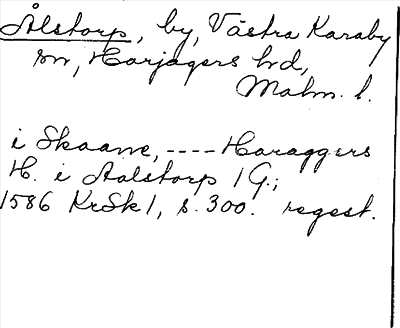 Ålstorp, by, Västra Karaby
sn, Harjagers hd,
Malm. l.
i Skaane, ---- Haraggers
H. i Aalstorp 1 G.;
1586 KrSk 1, s. 300. regest.